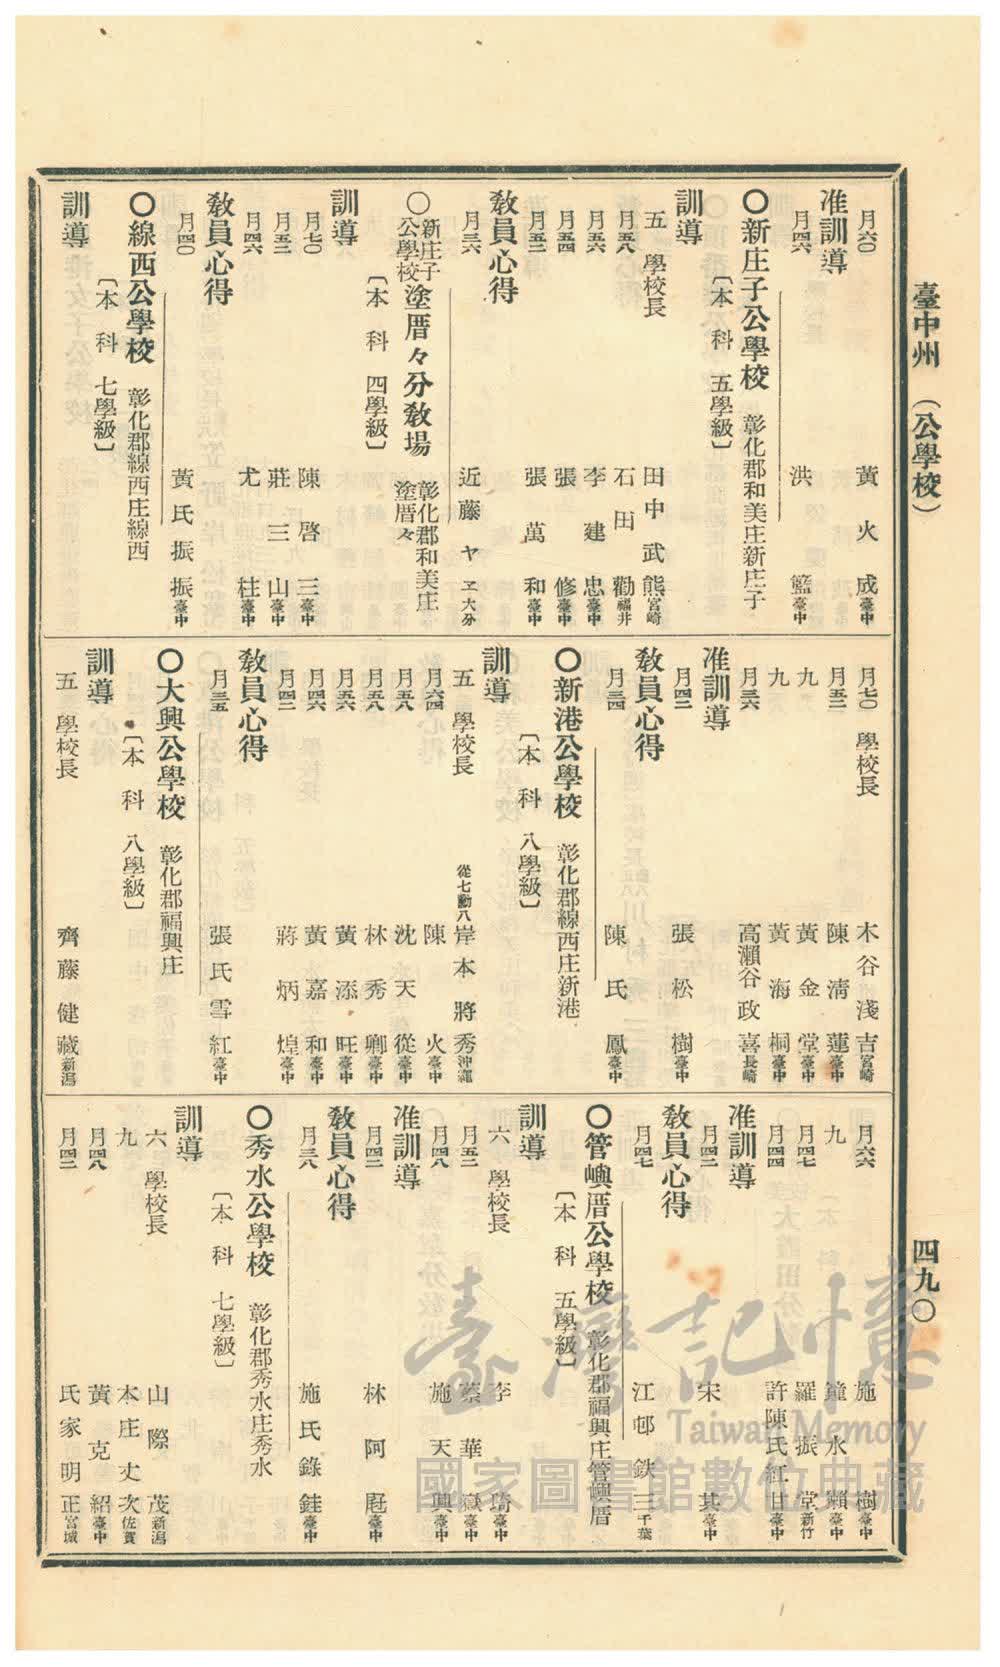 臺中州 (公學校) 四九〇
月六〇 黃火成臺中
准訓導
月四六 洪籃臺中
〇新庄子公學校 彰化郡和美庄新庄子
〔本科 五學級〕
訓導
五 學校長 田中武熊宮崎
月五八 石田勸福井
月五六 李建忠臺中
月五四 張修臺中
月五二 張萬和臺中
教員心得
月三六 近藤ヤヱ大分
〇新庄子公學校塗厝々分教場 彰化郡和美庄塗厝々
〔本科 四學級〕
訓導
月七〇 陳啓三臺中
月五二 莊三山臺中
月四六 尤柱臺中
教員心得
月四〇 黃氏振振臺中
〇線西公學校 彰化郡線西庄線西
〔本科 七學級〕
訓導
月七〇 學校長 木谷淺吉宮崎
月五二 陳清蓮臺中
九 黃金堂臺中
九 黃海桐臺中
月三六 高瀨谷政喜長崎
准訓導
月四二 張松樹臺中
教員心得
月三四 陳氏鳳臺中
〇新港公學校 彰化郡線西庄新港
〔本科 八學級〕
訓導
五 學校長 從七勳八岸本將秀沖繩
月六四 陳火臺中
月五八 沈天從臺中
月五八 林秀卿臺中
月五六 黃添旺臺中
月四六 黃嘉和臺中
月四二 蔣炳煌臺中
教員心得
月三五 張氏雪紅臺中
〇大興公學校 彰化郡福興庄
〔本科 八學級〕
訓導
五 學校長 齊藤健藏新潟
月六六 施樹臺中
九 鐘水瀨臺中
月四七 羅振堂新竹
月四四 許陳氏紅甘臺中
准訓導
月四二 宋其臺中
教員心得
月四七 江邨鉄三千葉
〇管嶼厝公學校 彰化郡福興庄管嶼厝
〔本科 五學級〕
訓導
六 學校長 李琦臺中
月五二 蔡華嶽臺中
月四八 施天興臺中
准訓導
月四二 林阿屘臺中
教員心得
月三八 施氏錄銈臺中
〇秀水公學校 彰化郡秀水庄秀水
〔本科 七學級〕
訓導
六 學校長 山際茂新潟
九 本庄丈次佐賀
月四八 黃克紹臺中
月四二 氏家明正宮城
臺灣記憶
Taiwan Memory
國家圖書館數位典藏